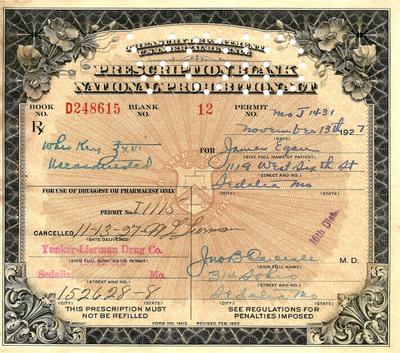 TREASURY DEPARTMENT
PRESCRIPTION BLANK
NATIONAL PROHIBITION ACT
BOOK NO. D248615 BLANK NO. 12 PERMIT NO. Mo I 1431
November 13th 1927
Rx
Whiskey ℥xvi
FOR James Egan
(GIVE FULL NAME OF PATIENT)
1119 West Sixth St
(STREET AND NO.)
Sedalia Mo
(CITY) (STATE)
FOR USE OF DRUGGIST OR PHARMACIST ONLY
PERMIT No. I 1115
CANCELLED 11-13-27
(DATE DELIVERED)
16th Dist.
Yunker-Lierman Drug Co.
(SIGN FULL NAME AS ON PERMIT)
Jno B M. D.
(SIGN FULL NAME)
Sedalia, Mo.
(STREET AND NO.)
(STREET AND NO.)
152628-8
Sedalia Mo
(CITY) (STATE)
(CITY) (STATE)
THIS PRESCRIPTION MUST NOT BE REFILLED
SEE REGULATIONS FOR PENALTIES IMPOSED
FORM NO. 1403 REVISED FEB. 1922